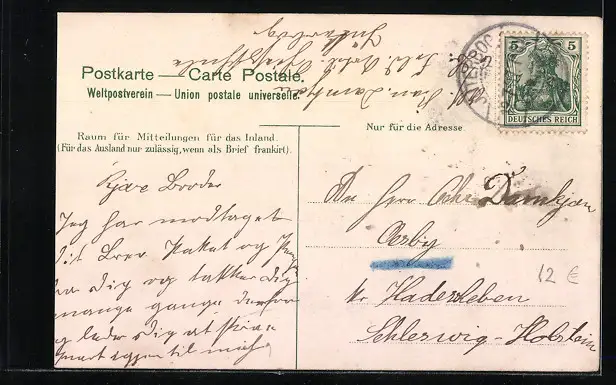 Postkarte — Carte Postale.
Weltpostverein — Union postale universelle.
Raum für Mitteilungen für das Inland.
(Für das Ausland nur zulässig, wenn als Brief frankirt).
Nur für die Adresse.
5 5
DEUTSCHES REICH
Kjære Broder
Jeg har modtaget
Dit Brev Paket og
fra dig og takker dig
mange gange derfor
og beder dig at skrive
snart igjen til mig
An Herr Damkjær
Oerby
kr Hadersleben
Schleswig-Holstein
12 €